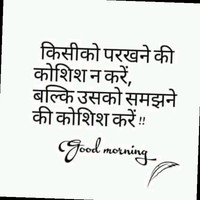 किसीको परखने की
कोशिश न करें,
बल्कि उसको समझने
की कोशिश करें !!
Good morning